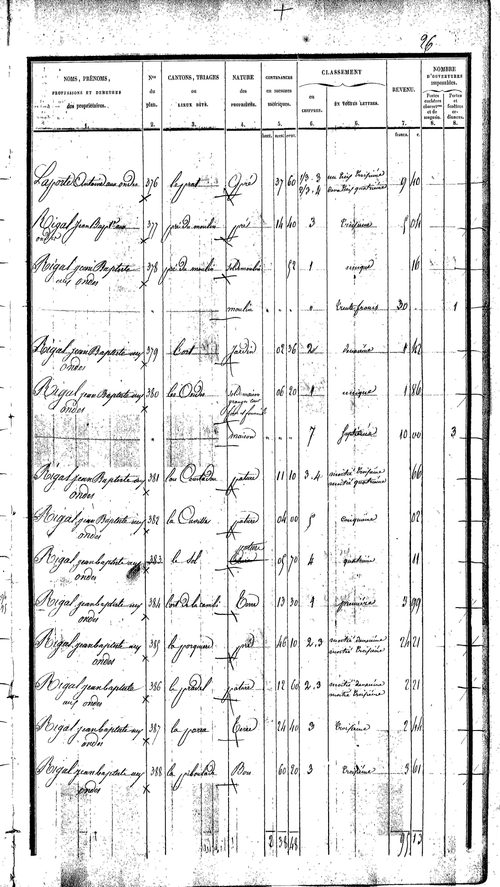 96
NOMS, PRÉNOMS, PROFESSIONS ET DEMEURES des propriétaires. | Nos du plan. | CANTONS, TRIAGES ou LIEUX DITS. | NATURE des PROPRIÉTÉS. | CONTENANCES en mesures métriques. | CLASSEMENT en CHIFFRES. | EN TOUTES LETTRES. | REVENU. | NOMBRE D'OUVERTURES imposables.
1. 2. 3. 4. 5. 6. 6. 7. 8. 8.
Laporte Antoine aux ondes 376 le prat pré 37 60 1/3.3 2/3.4 un tiers troisième deux tiers quatrième 9 40
Rigal Jean Bapte aux ondes 377 pré du moulin pré 14 40 3 troisième 5 04
Rigal jean Baptiste aux ondes 378 pré du moulin sol moulin 52 1 unique 16
moulin " " " " trente francs 30 " 1
Rigal jean Baptiste aux ondes 379 L'ort jardin 02 36 2 deuxième 1 42
Rigal jean Baptiste aux ondes 380 les Ondes sol maison grange cour 06 20 1 unique 1 86
" " maison " " " 7 septième 10 00 3
Rigal jean Baptiste aux ondes 381 pature 11 10 3.4 moitié troisième moitié quatrième 66
Rigal jean Baptiste aux ondes 382 pature 04 00 5 cinquième 02
Rigal jean baptiste aux ondes 383 le sol pature 05 70 4 quatrième 11
Rigal jean baptiste aux ondes 384 Terre 13 30 1 première 3 99
Rigal jean baptiste aux ondes 385 pré 46 10 2.3 moitié deuxième moitié troisième 24 21
Rigal jean baptiste aux ondes 386 le pradel pature 12 60 2.3 moitié deuxième moitié troisième 2 21
Rigal jean baptiste aux ondes 387 Terre 24 40 3 troisième 2 44
Rigal jean baptiste aux ondes 388 Bois 60 20 3 troisième 3 61
2 38 48 95 13